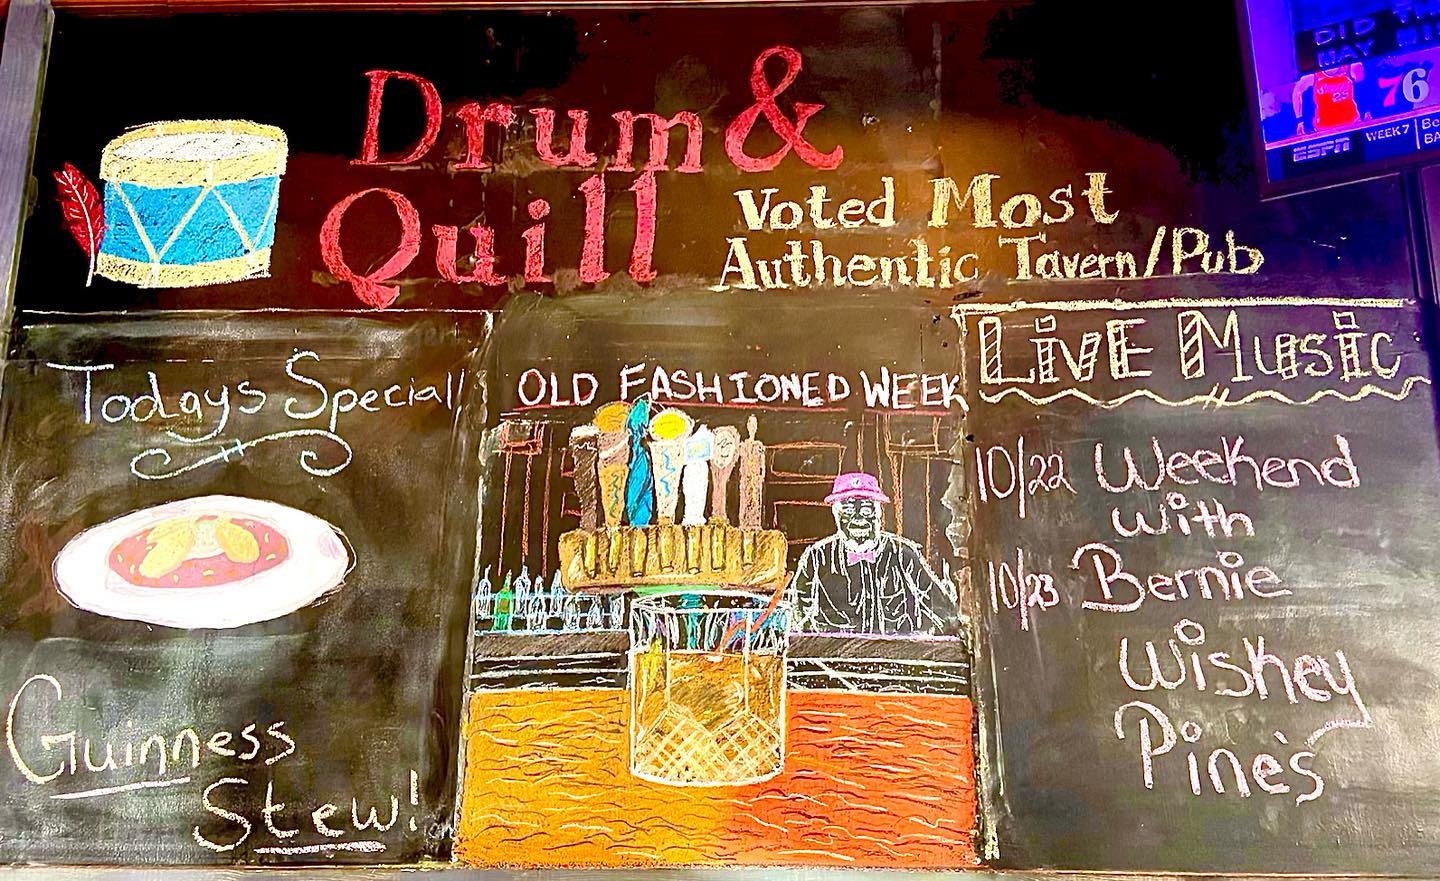 Drum &
Quill
Voted Most
Authentic Tavern/Pub
Todays Special
Guinness
Stew!
OLD FASHIONED WEEK
LIVE MUSIC
10/22 Weekend
with
10/23 Bernie
Wiskey
Pine's
DID
WAY
76
25
ESPN
WEEK 7
BA